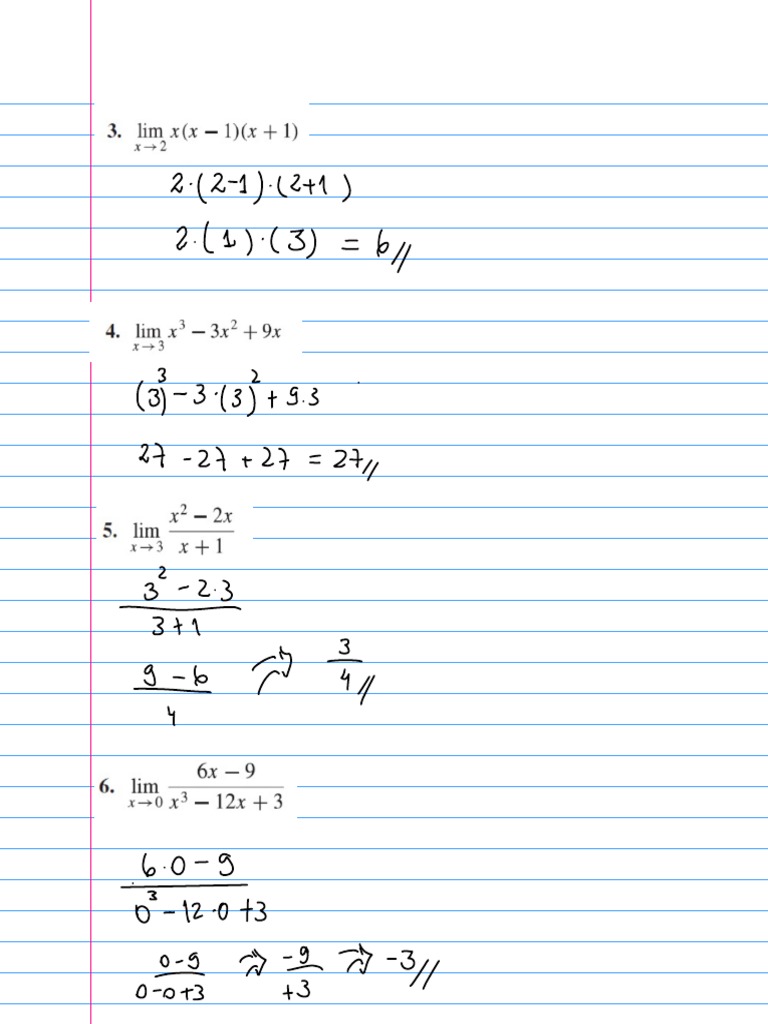 3. lim x→2 x(x − 1)(x + 1)
2·(2-1)·(2+1)
2·(1)·(3) = 6//
4. lim x→3 x³ − 3x² + 9x
(3)³ - 3·(3)² + 9.3
27 - 27 + 27 = 27//
5. lim x→3 (x² − 2x)/(x + 1)
3² - 2.3
3+1
9 - 6 ⇒ 3/4//
4
6. lim x→0 (6x − 9)/(x³ − 12x + 3)
6·0 - 9
0³ - 12·0 +3
0-9 ⇒ -9 ⇒ -3//
0-0+3 +3